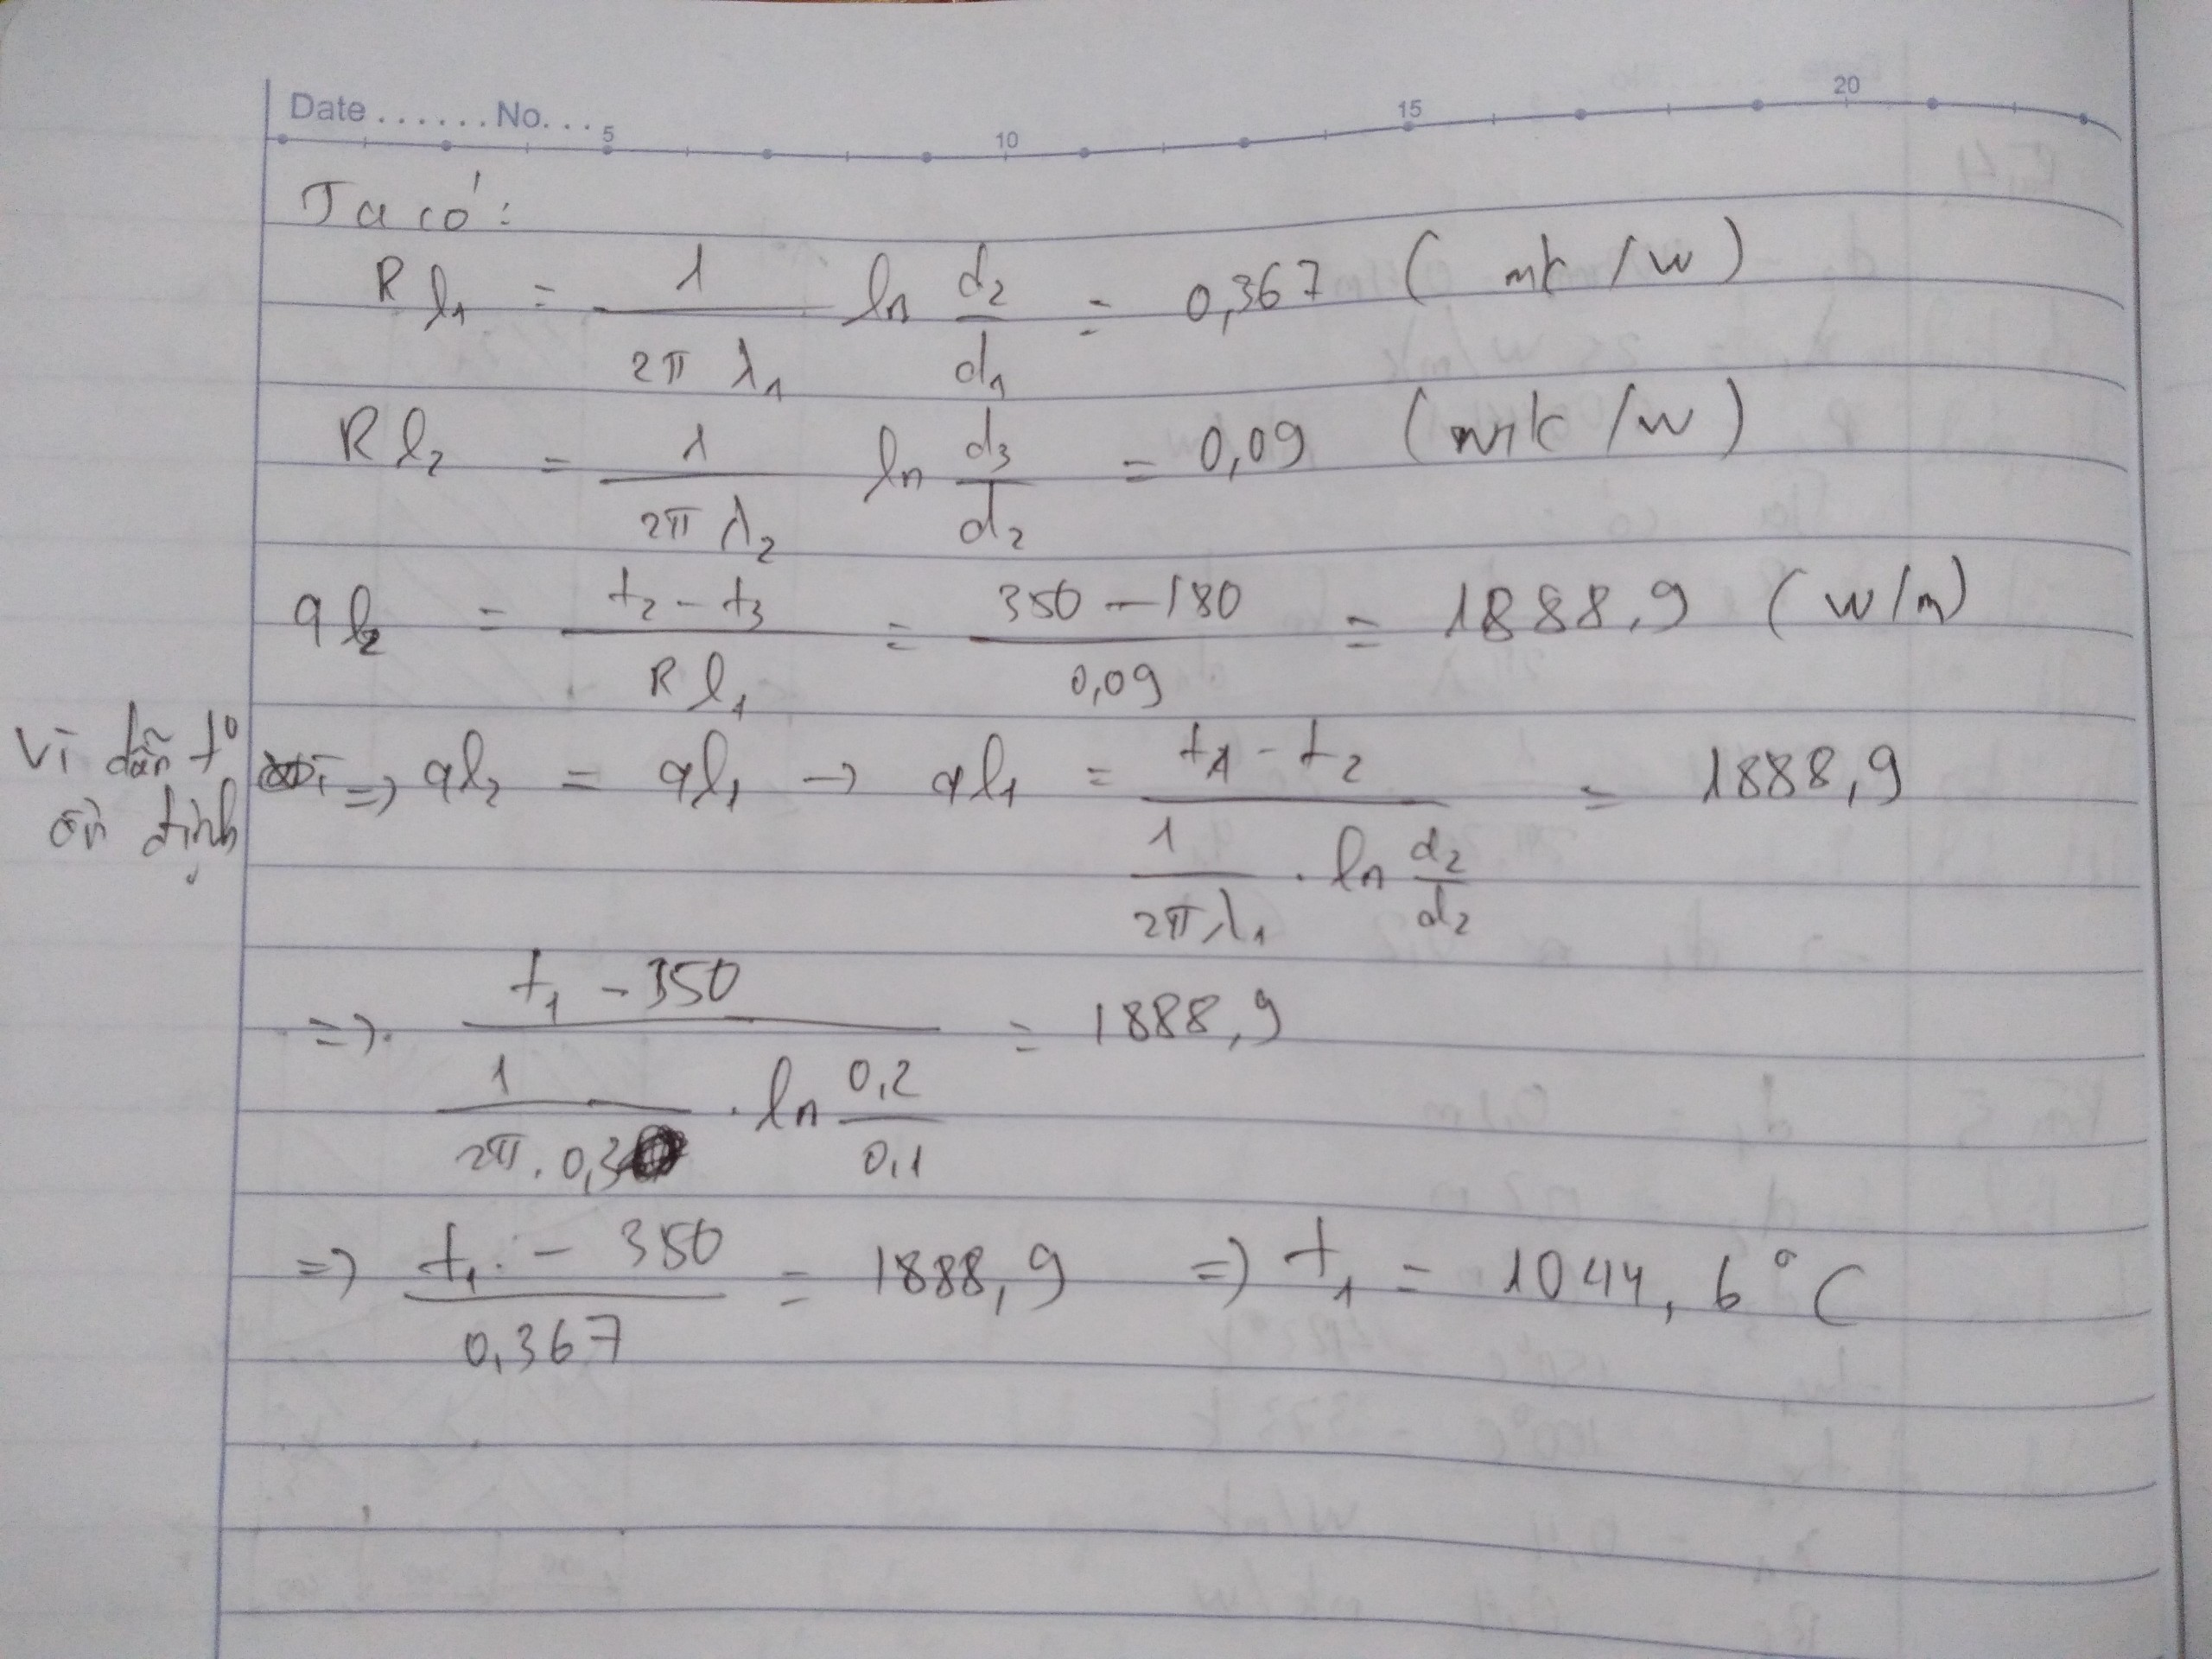 Date ...... No. ... 5 10 15 20
Ta có:
R l₁ = 1 / 2π λ₁ ln d₂ / d₁ = 0,367 (mk/w)
R l₂ = 1 / 2π λ₂ ln d₃ / d₂ = 0,09 (mk/w)
q l₂ = t₂ - t₃ / R l₁ = 350 - 180 / 0,09 = 1888,9 (w/m)
Vì dẫn t° ổn định => q l₂ = q l₁ → q l₁ = t₁ - t₂ / 1 / 2π λ₁ . ln d₂ / d₂ = 1888,9
=> t₁ - 350 / 1 / 2π . 0,3 . ln 0,2 / 0,1 = 1888,9
=> t₁ - 350 / 0,367 = 1888,9 => t₁ = 1044,6°C